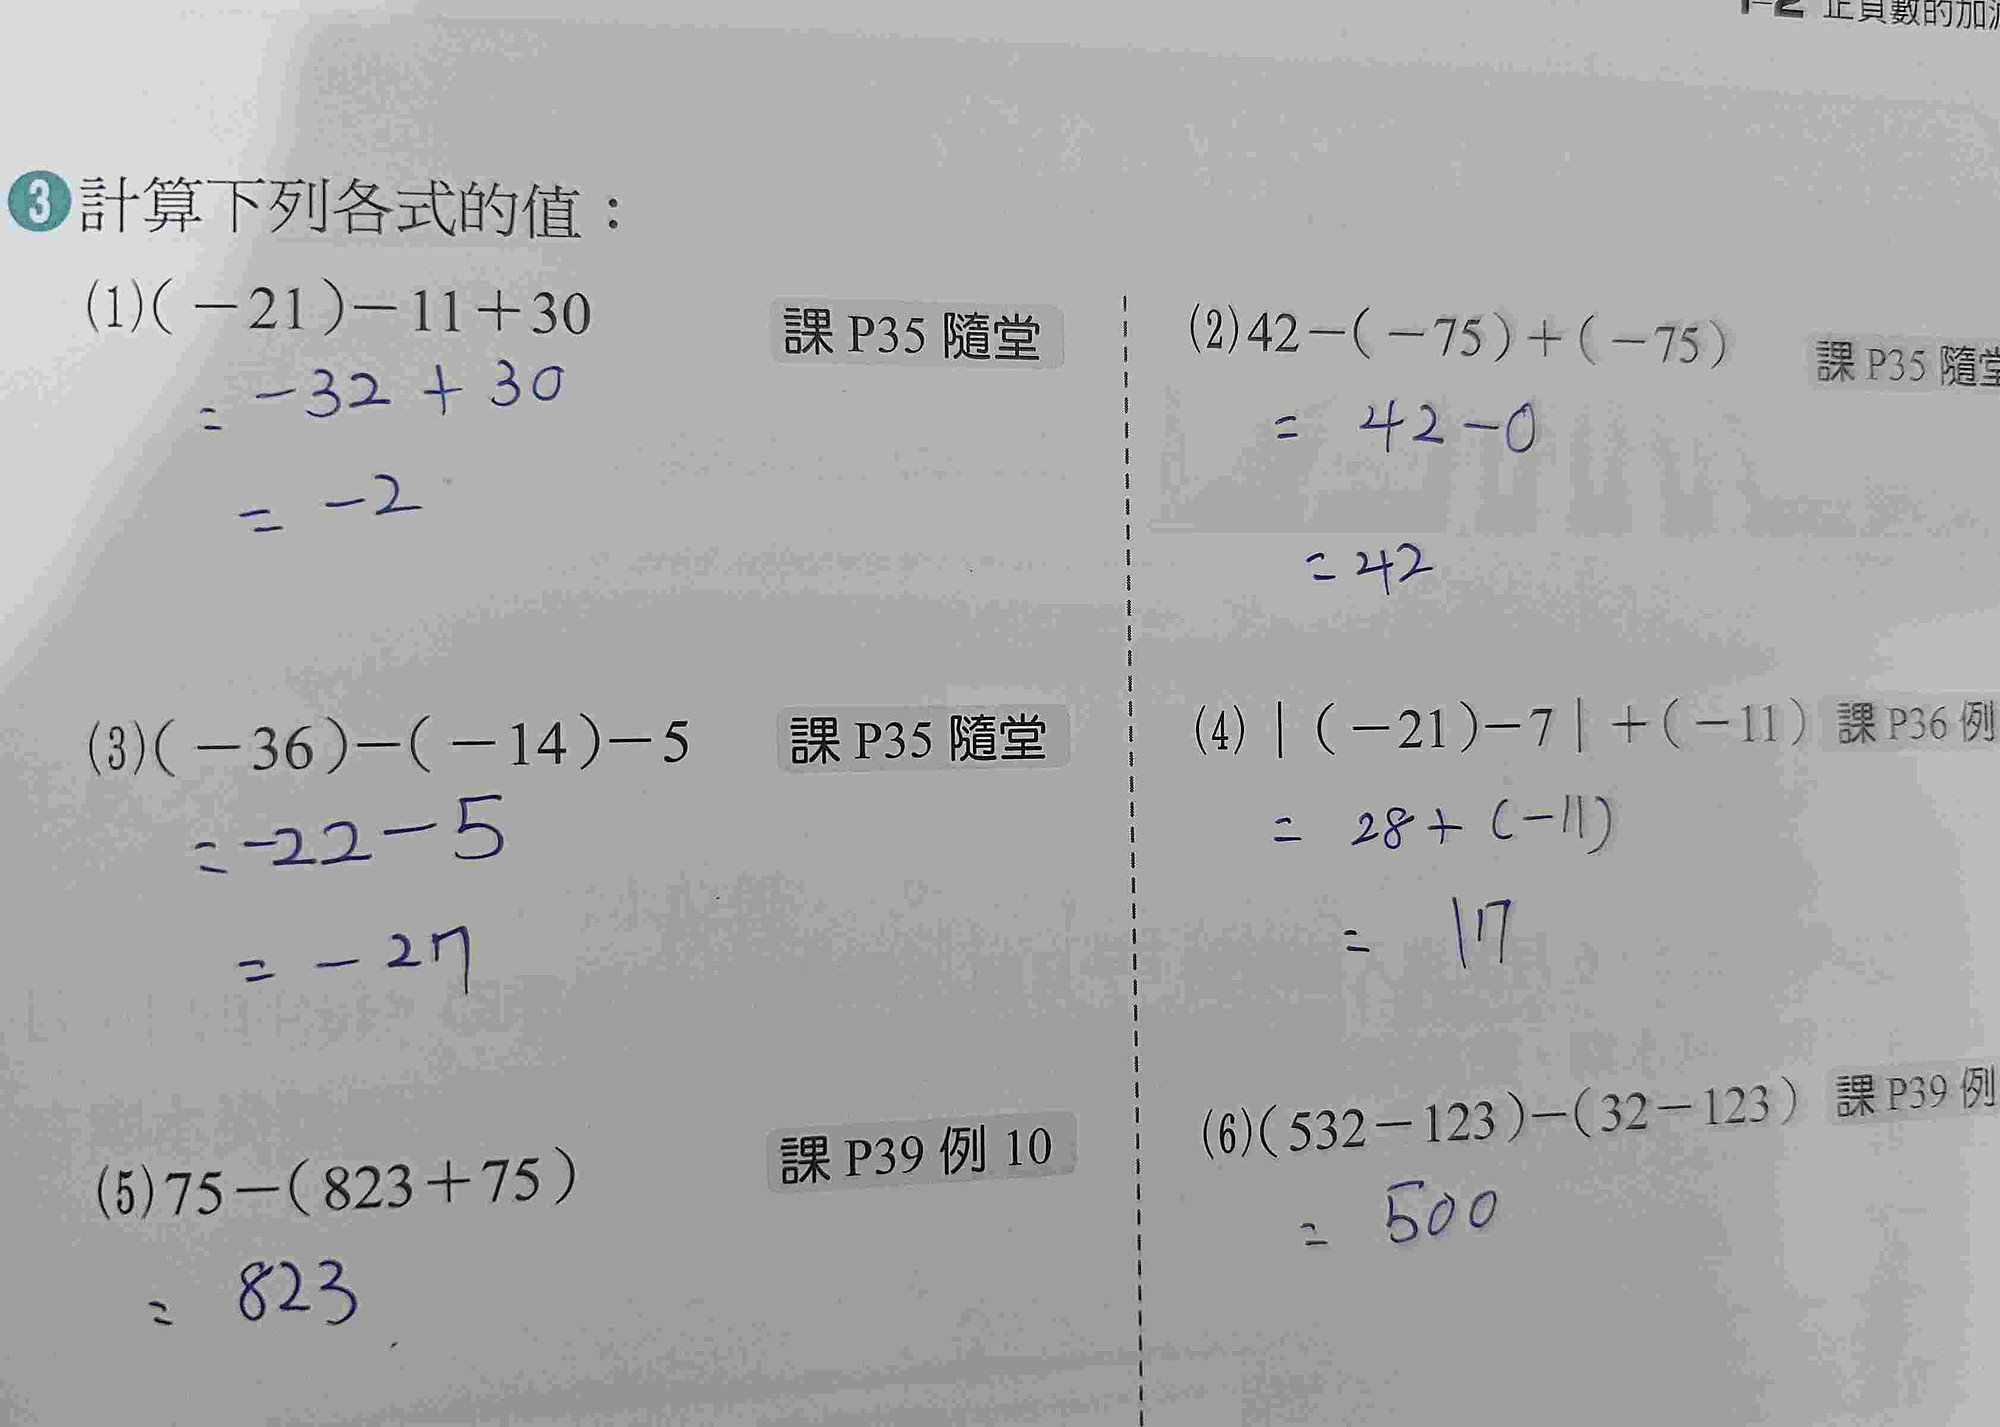 1-2 正負數的加減
3 計算下列各式的值：
(1)(－21)－11＋30 課 P35 隨堂
= -32 + 30
= -2
(2)42－(－75)＋(－75) 課 P35 隨堂
= 42-0
=42
(3)(－36)－(－14)－5 課 P35 隨堂
=-22-5
= -27
(4)|(－21)－7|＋(－11) 課 P36 例
= 28+(-11)
= 17
(5)75－(823＋75) 課 P39 例 10
= 823
(6)(532－123)－(32－123) 課 P39 例
= 500